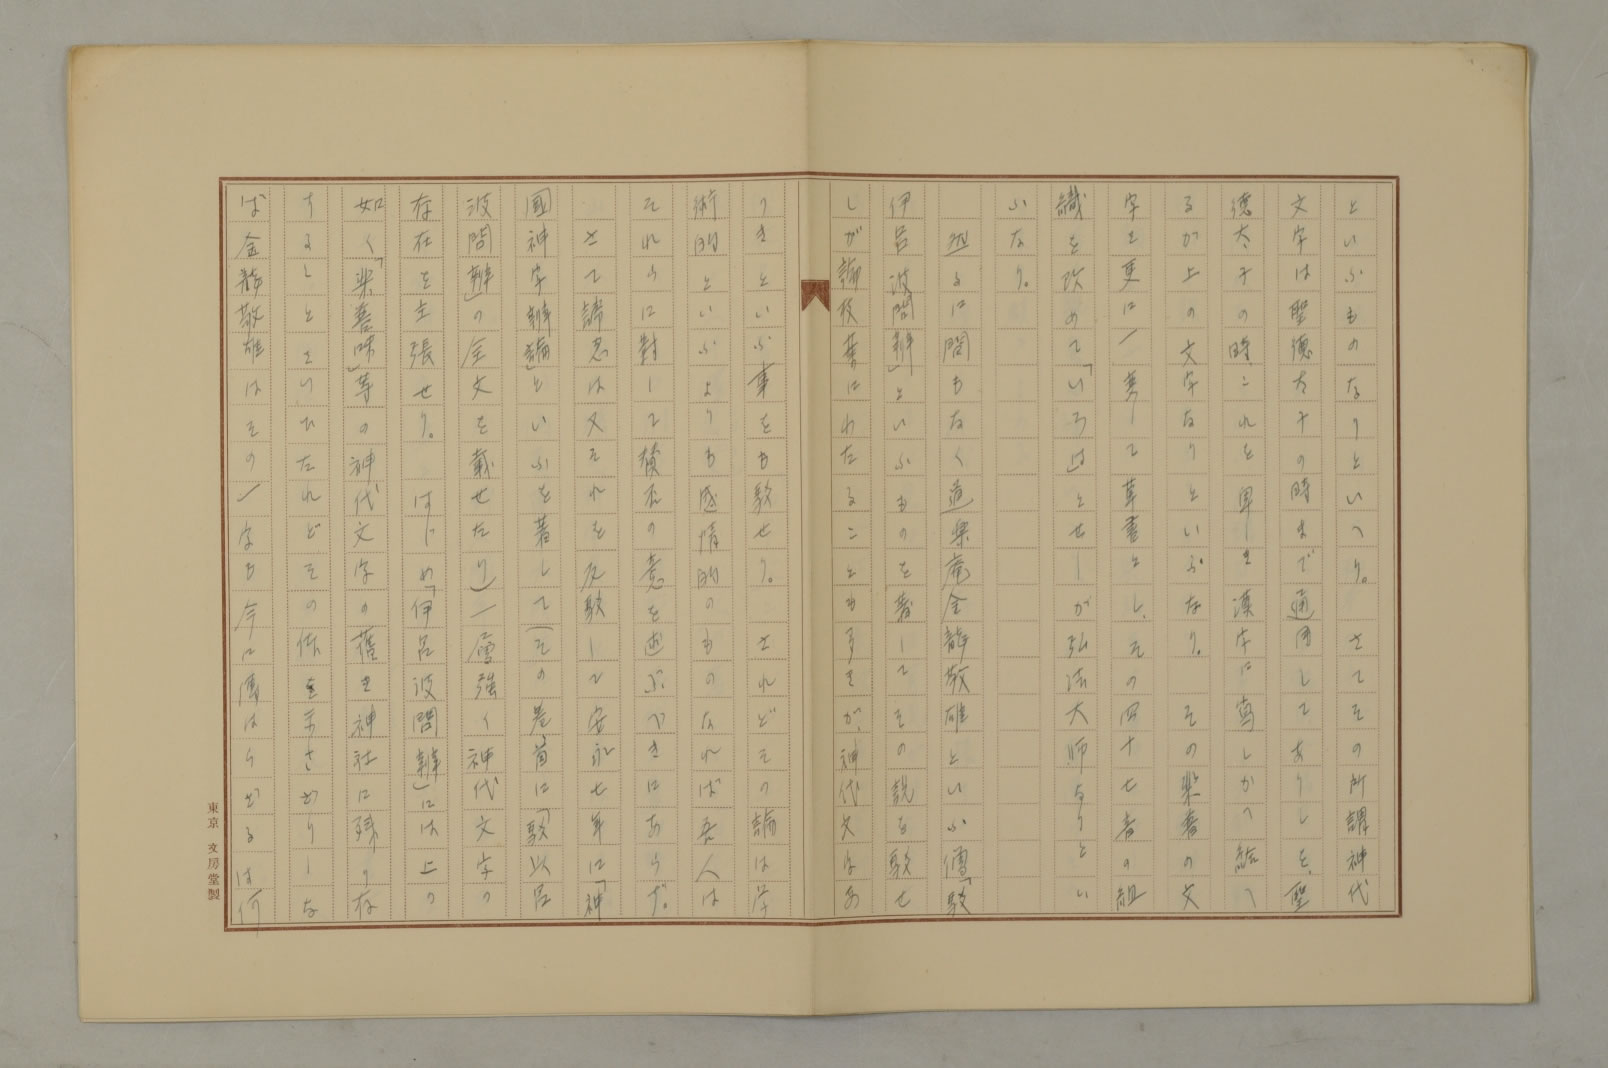 といふものなりといへり。　さてその所謂神代
文字は聖徳太子の時まで通用してありしを、聖
徳太子の時、これを卑しき漢字に寫しかへ給へ
るが上の文字なりといふなり。　その樂書の文
字を更に一夢して草書とし、その四十七音の組
織を改めて「いろは」とせしが弘法大師なりとい
ふなり。
　然るに間もなく道樂庵金龍敬雄といふ僧「駁
伊呂波問辨」といふものを著してその説を駁せ
しが論枝葉にわたることも多きが、神代文字あ
りきといふ事をも駁せり。　されどその論は学
術的といふよりも感情的のものなれば吾人は
それらに對して賛否の意を述ぶべきにあらず。
　さて諦忍は又それを反駁して安永七年に「神
國神字辨論」といふを著して(その巻首に「駁以呂
波問辨」の全文を載せたり)一層強く神代文字の
存在を主張せり。　はじめ「伊呂波問辨」には上の
如く「樂書味」等の神代文字の舊き神社に残り存
するしとといひたれどその体を示さざりしな
ば金龍敬雄はその一字も今に傳はらざるは何
東京　文房堂製